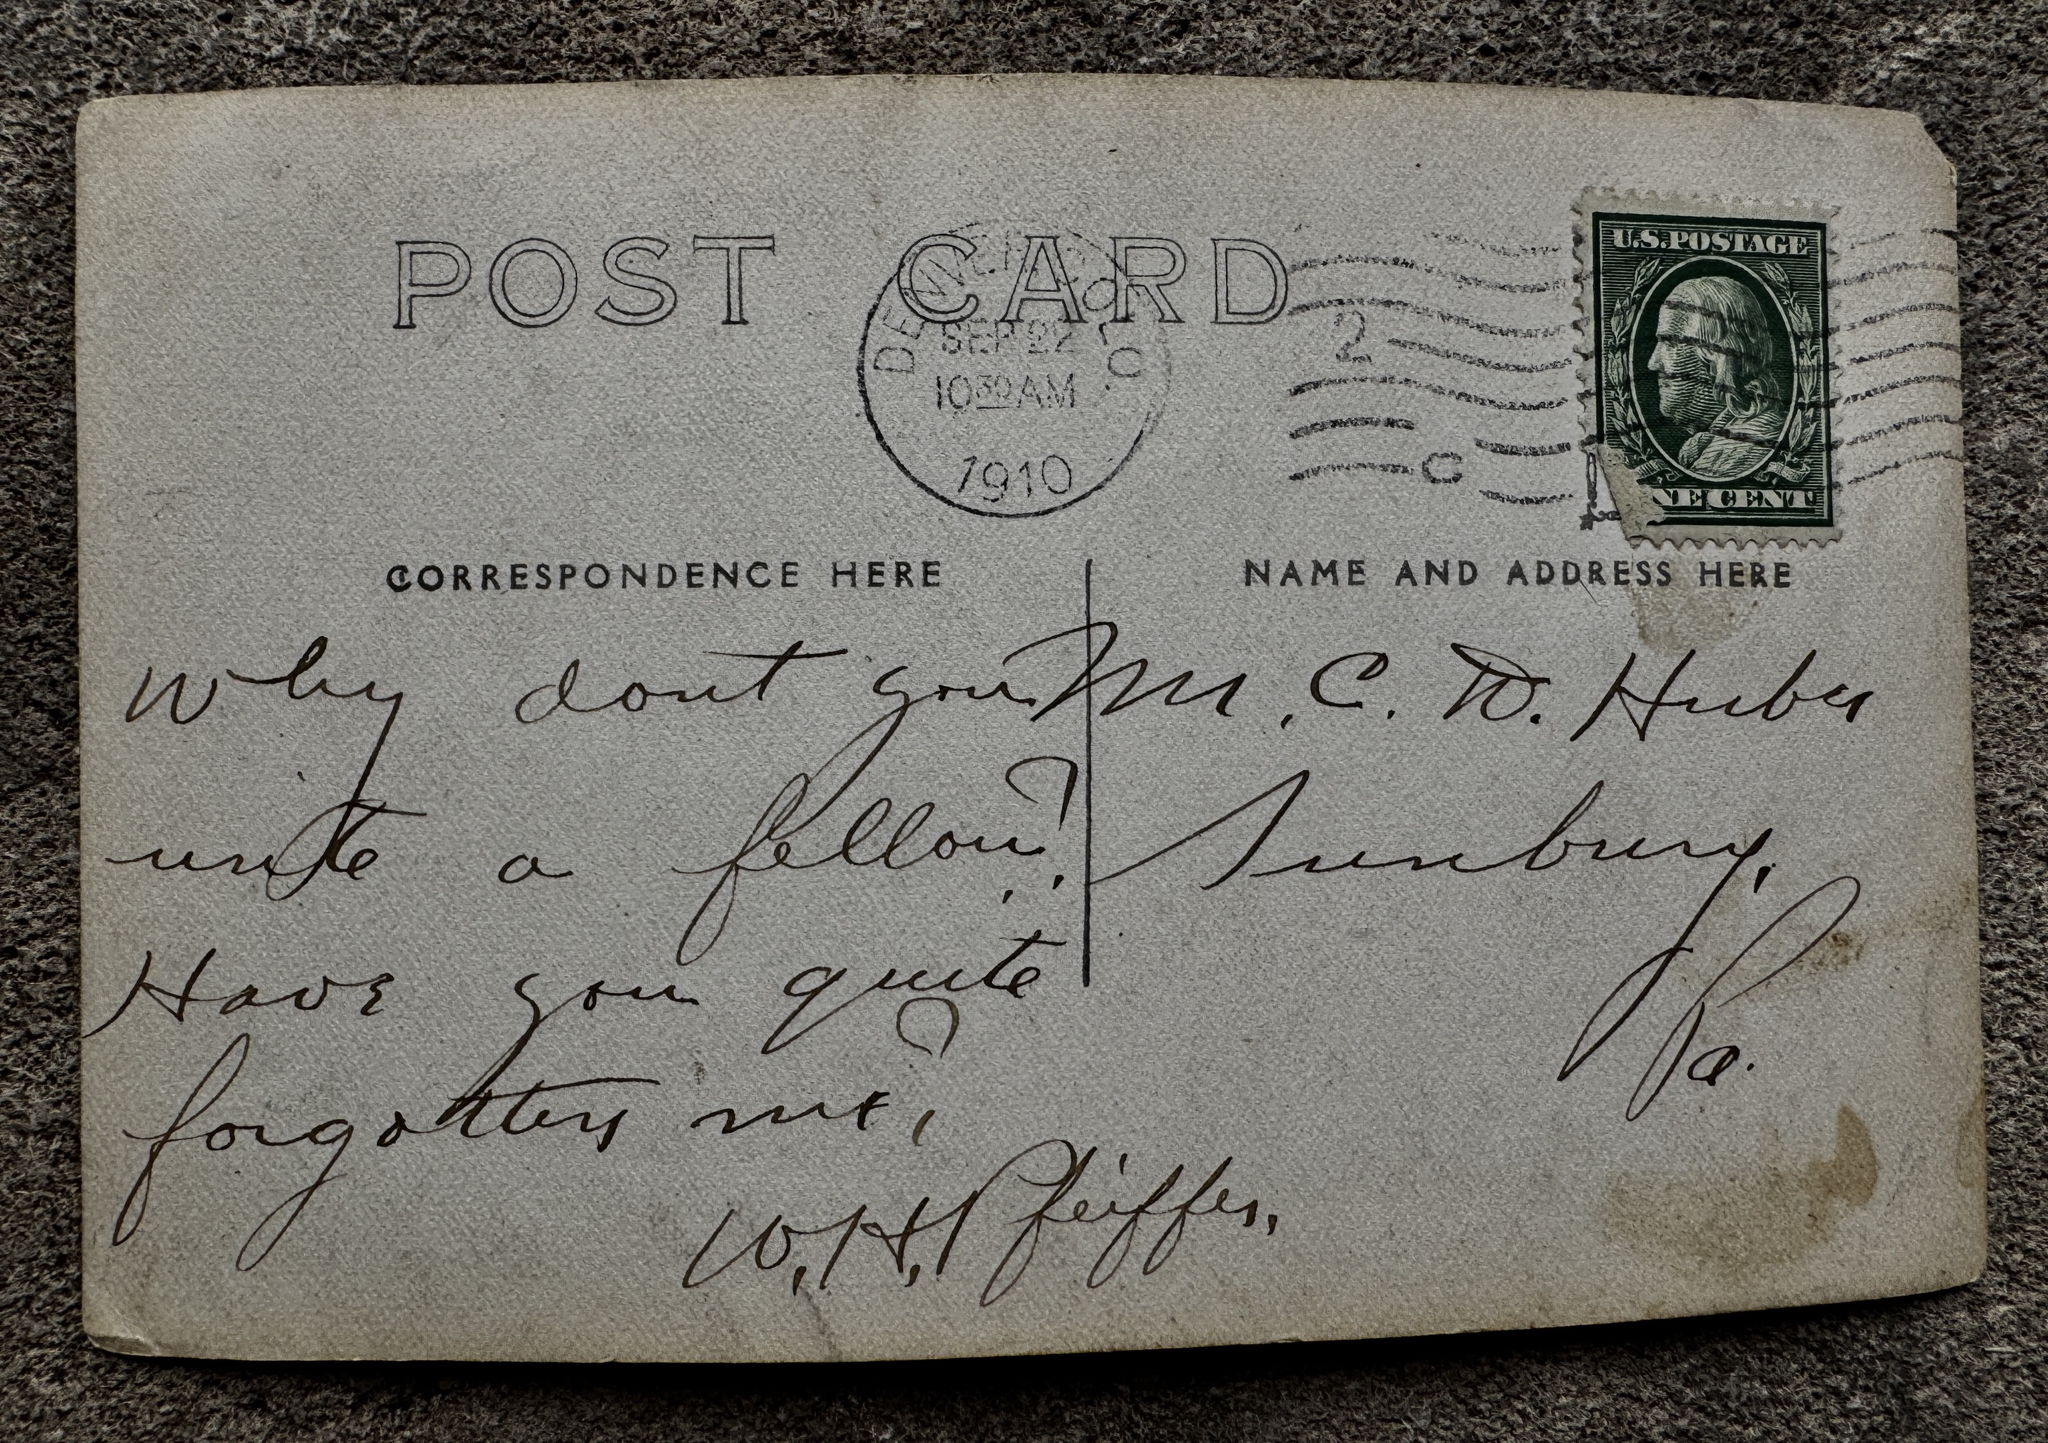 POST CARD
DENVER, COLO.
SEP 22
10 30 AM
1910
2
C
U.S. POSTAGE
NE CENT
CORRESPONDENCE HERE
NAME AND ADDRESS HERE
Why dont you
write a fellow?
Have you quite
forgotten me?
W. H. Pfeiffer.
Mr. C. W. Huber
Sunbury,
Pa.